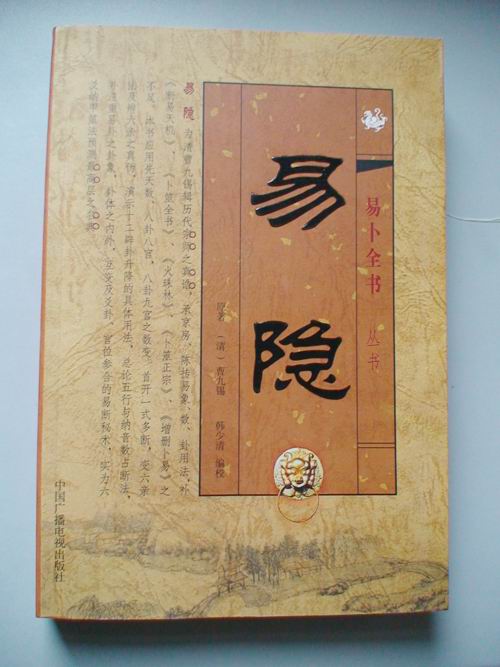 易卜全书 丛书
易隐
原著 （清） 曹九锡 韩少清 编校
易隐 为清曹九锡辑历代宗师之真诠，承京房、陈抟易象、数、卦用法，补
《断易天机》、《卜筮全书》、《火珠林》、《卜筮正宗》、《增删卜易》之
不足。本书应用先天数，八卦八宫，八卦九宫之数变。首开一式多断，变六亲
法及辨六法之真物，演示十二辟卦升降的具体用法，总论五行与纳音数占断法，
并注重易卦之卦象，卦体之内外，互变及爻卦、宫位参合的易断秘术，实为六
爻纳甲筮法预测最高层之
中国广播电视出版社